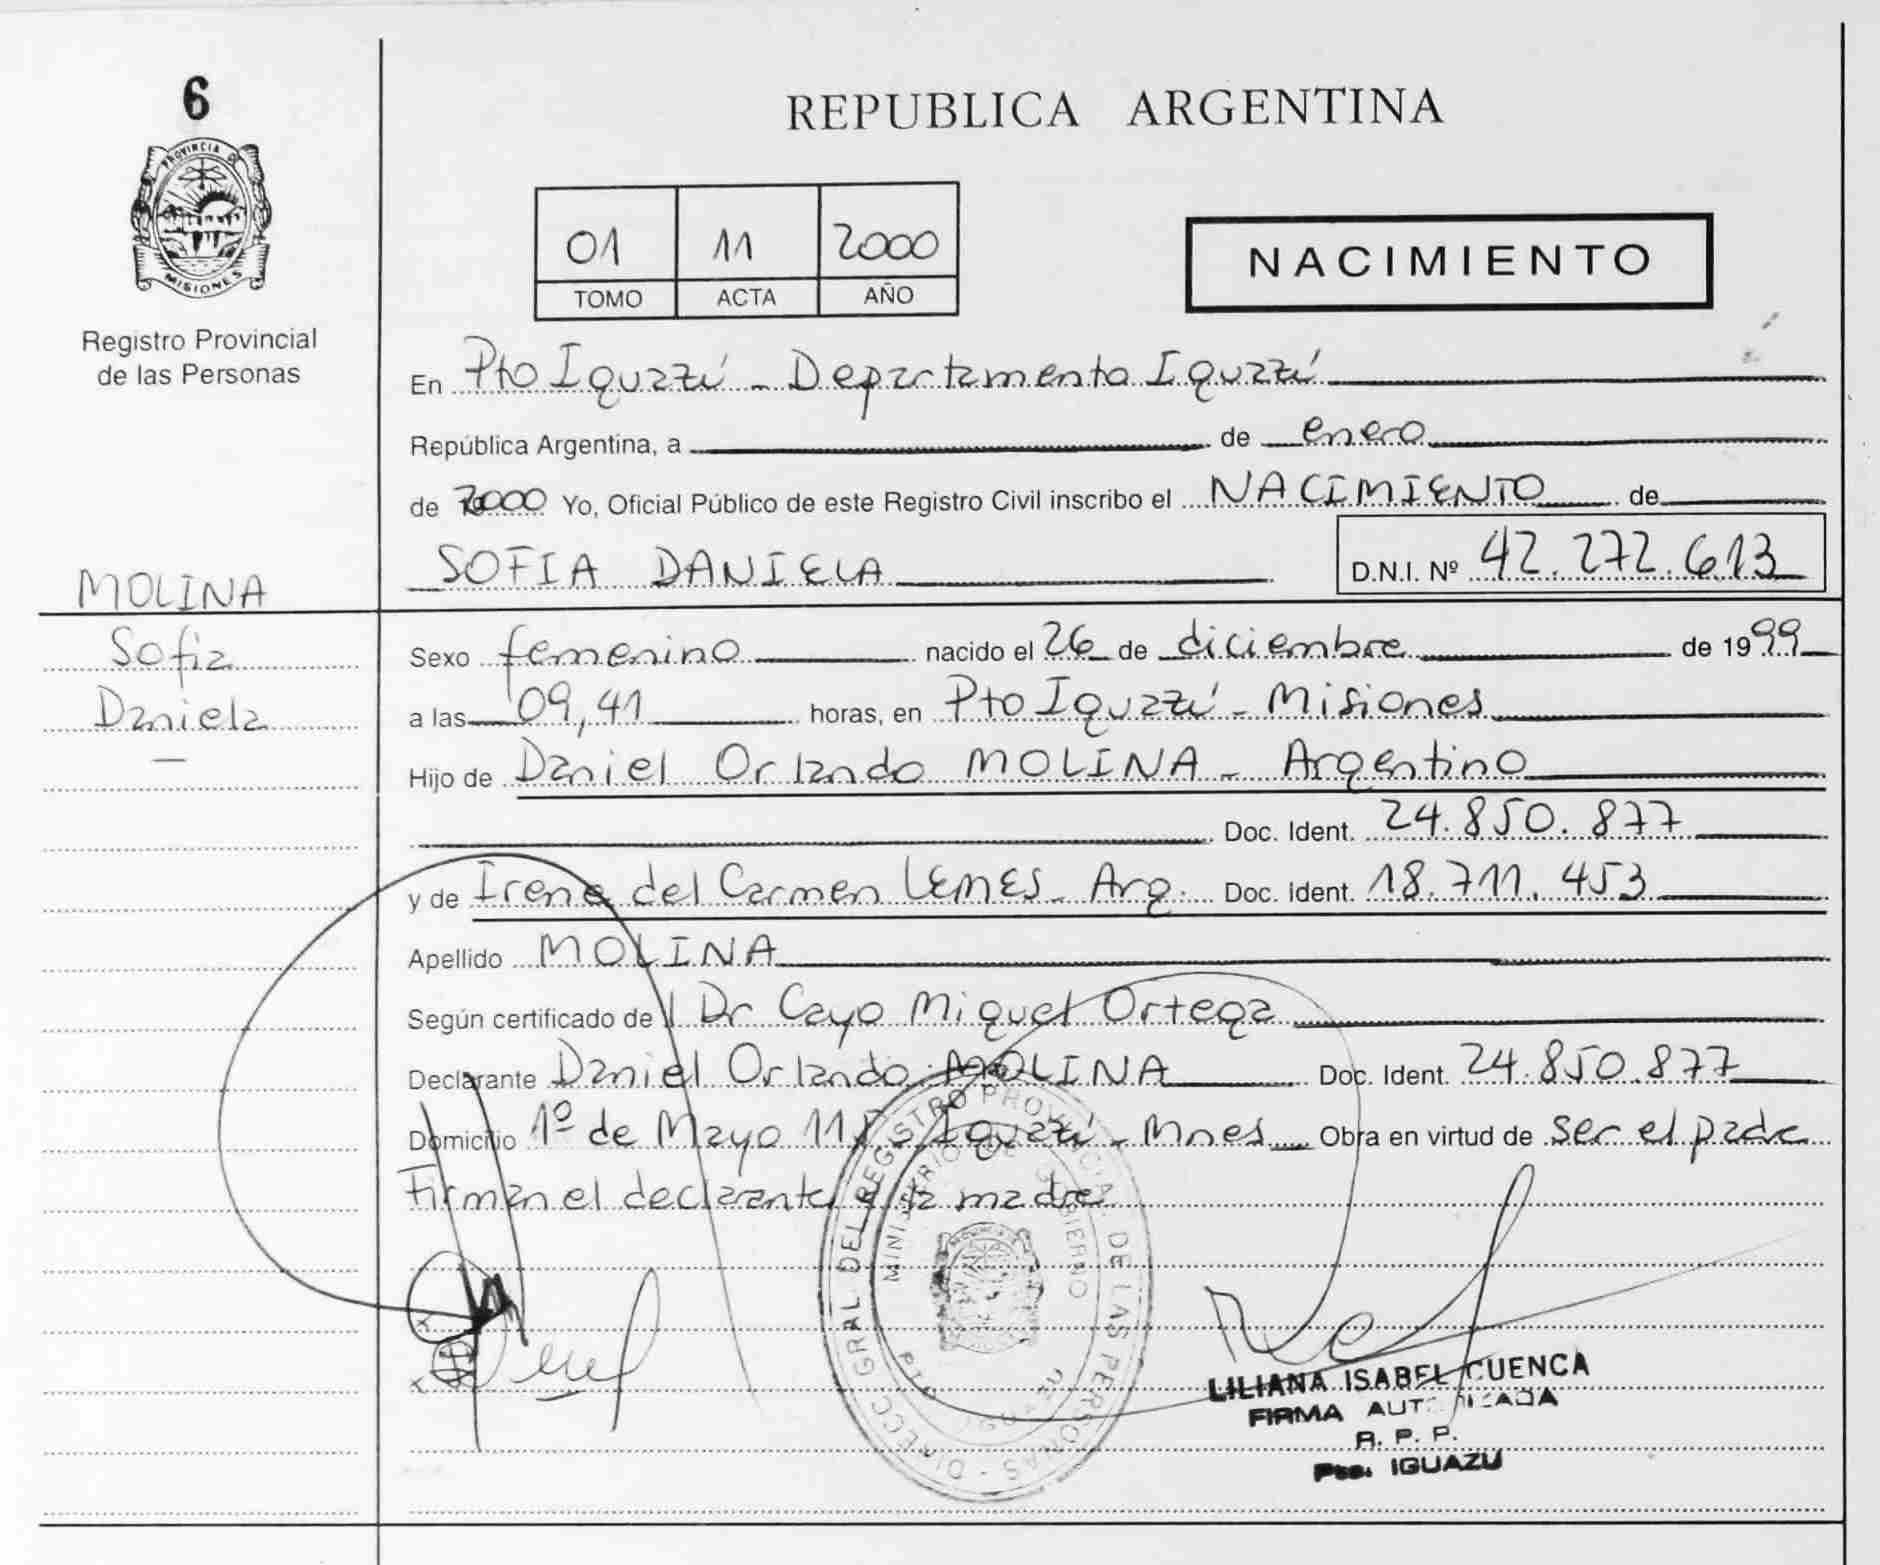 6
PROVINCIA DE
MISIONES
Registro Provincial
de las Personas
MOLINA
Sofia
Daniela
REPUBLICA ARGENTINA
01 11 2000
TOMO ACTA AÑO
NACIMIENTO
En Pto Iguazú - Departamento Iguazú
República Argentina, a de enero
de 2000 Yo, Oficial Público de este Registro Civil inscribo el NACIMIENTO de
SOFIA DANIELA D.N.I. Nº 42.272.613
Sexo femenino nacido el 26 de diciembre de 1999
a las 09,41 horas, en Pto Iguazú - Misiones
Hijo de Daniel Orlando MOLINA - Argentino
Doc. Ident. 24.850.877
y de Irene del Carmen LEMES - Arg. Doc. Ident. 18.711.453
Apellido MOLINA
Según certificado de Dr Cayo Miguel Ortega
Declarante Daniel Orlando MOLINA Doc. Ident. 24.850.877
Domicilio 1º de Mayo Iguazú - Mnes Obra en virtud de ser el padre
Firman el declarante y la madre
DIRECC GRAL DEL REGISTRO PROVINCIAL DE LAS PERSONAS
MINISTERIO DE GOBIERNO
LILIANA ISABEL CUENCA
FIRMA AUTORIZADA
R. P. P.
Pto. IGUAZU